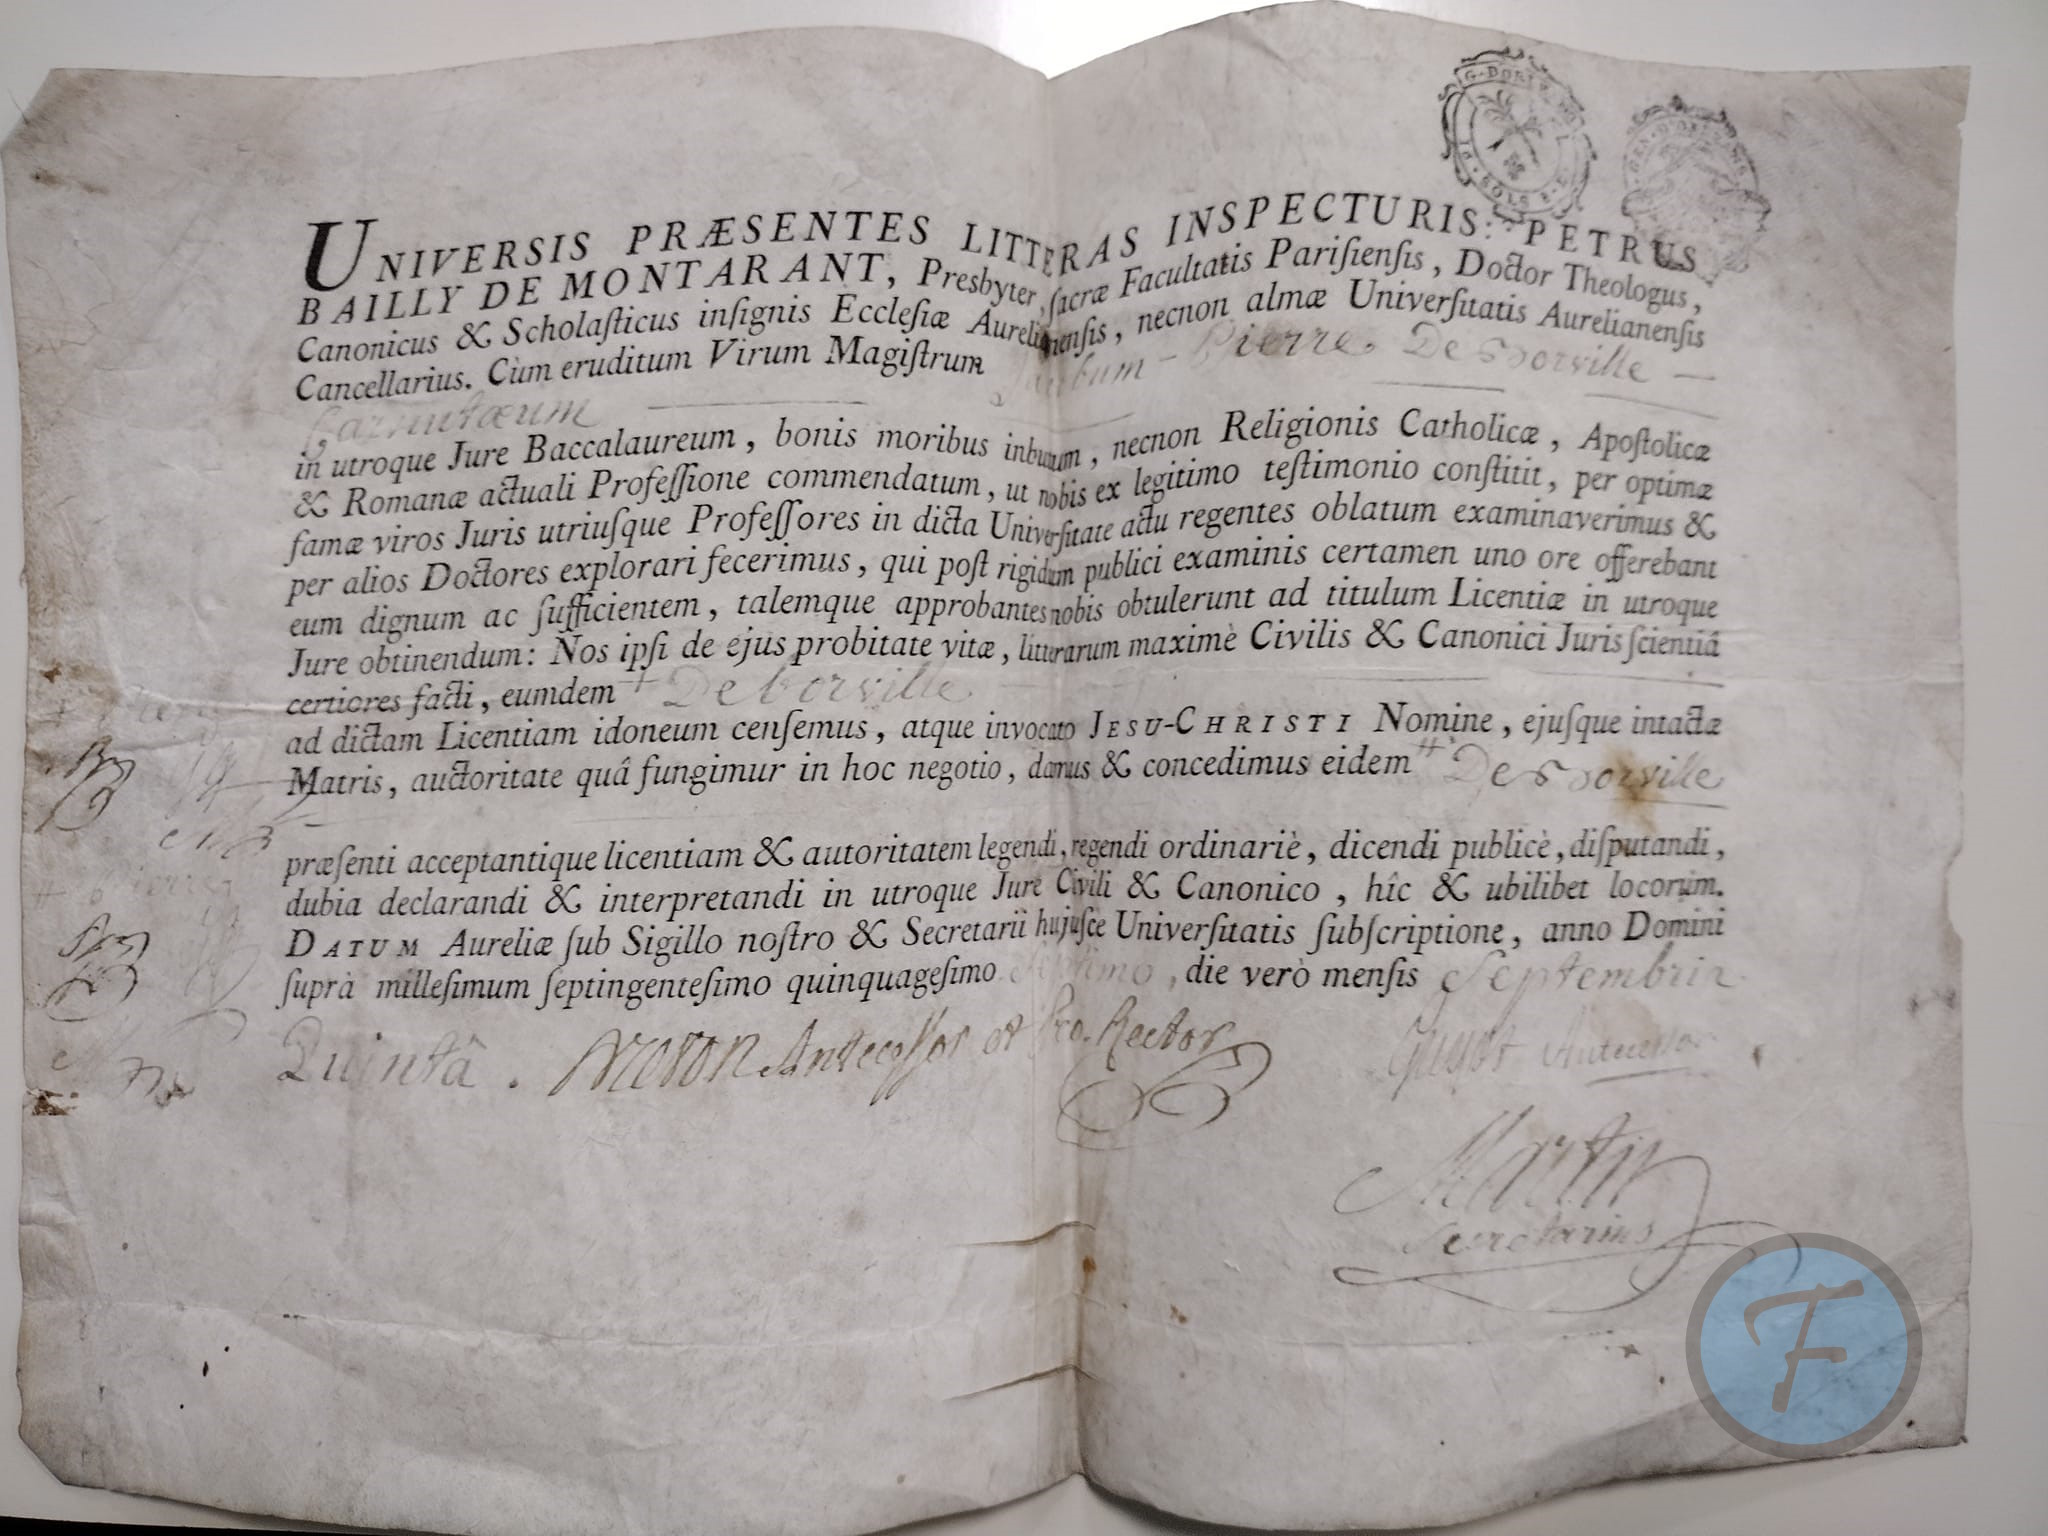 UNIVERSIS PRÆSENTES LITTERAS INSPECTURIS: PETRUS
BAILLY DE MONTARANT, Presbyter, ſacræ Facultatis Pariſienſis, Doctor Theologus,
Canonicus & Scholaſticus inſignis Eccleſiæ Aurelianenſis, necnon almæ Univerſitatis Aurelianenſis
Cancellarius. Cùm eruditum Virum Magiſtrum Pierre
in utroque Jure Baccalaureum, bonis moribus inbutum, necnon Religionis Catholicæ, Apoſtolicæ
& Romanæ actuali Profeſſione commendatum, ut nobis ex legitimo teſtimonio conſtitit, per optimæ
famæ viros Juris utriuſque Profeſſores in dicta Univerſitate actu regentes oblatum examinaverimus &
per alios Doctores explorari fecerimus, qui poſt rigidum publici examinis certamen uno ore offerebant
eum dignum ac ſufficientem, talemque approbantes nobis obtulerunt ad titulum Licentiæ in utroque
Jure obtinendum: Nos ipſi de ejus probitate vitæ, litterarum maximè Civilis & Canonici Juris ſcientiâ
certiores facti, eumdem
ad dictam Licentiam idoneum cenſemus, atque invocato JESU-CHRISTI Nomine, ejuſque intactæ
Matris, auctoritate quâ fungimur in hoc negotio, damus & concedimus eidem
præſenti acceptantique licentiam & autoritatem legendi, regendi ordinariè, dicendi publicè, diſputandi,
dubia declarandi & interpretandi in utroque Jure Civili & Canonico, hîc & ubilibet locorum.
DATUM Aureliæ ſub Sigillo noſtro & Secretarii hujuſce Univerſitatis ſubſcriptione, anno Domini
ſuprà milleſimum ſeptingenteſimo quinquageſimo septimo, die verò menſis Septembris
Quintâ. Moron Antecessor et Pro. Rector Guyot Antecessor
Martin
Secretarius
F